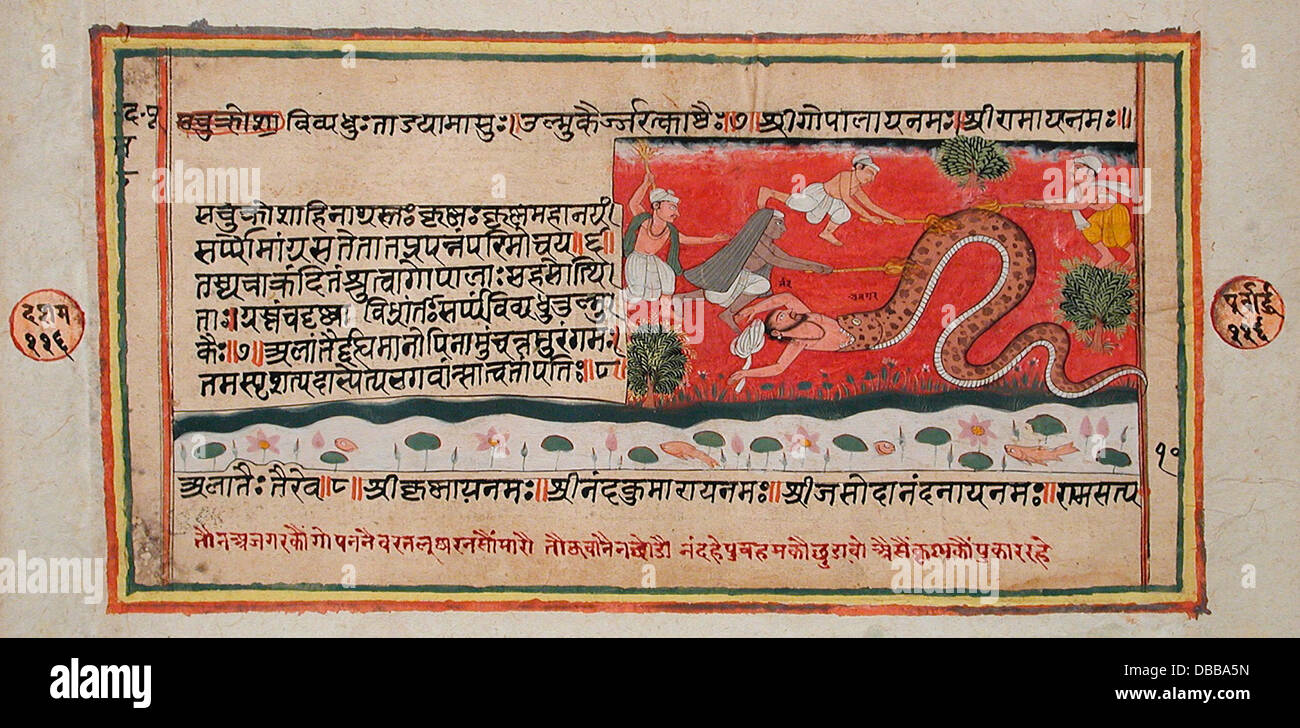 विव्यधुः ताडयामासुः।
॥७॥ श्रीगोपालायनमः॥श्रीरामायनमः॥
सचुक्रोशाहिनाग्रस्तःकृष्णःकृष्णमहानयं
सर्प्पोमांग्रसतेतातप्रपन्नंपरिमोचय॥६॥
तस्यचाक्रंदितंश्रुत्वागोपालाःसहसोत्थि
ताः।ग्रस्तंचदृष्ट्वा विभ्रांताःसर्प्पंविव्यधुरुल्मु
कैः॥७॥अलातैर्द्दह्यमानोपिनामुंचत्तमुरंगमः।
तमस्पृशत्पदाभ्येत्यभगवांन्सात्वतांपतिः॥८॥
अजगर
दशम
११६
पूर्वार्द्ध
११६
अलातैःतैरेव॥८॥श्रीकृष्णायनमः॥श्रीनंदकुमारायनमः॥श्रीजसोदानंदनायनमः॥रामसत्य
तौनअजगरकौंगोपननै तौऊवानैनछोडौ नंदहेपुत्रहमकौछुडावो ऐसैंकृष्णकौंपुकाररहे
१०
alamy
DBBA5N
www.alamy.com